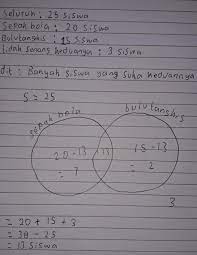 Seluruh : 25 siswa
Sepak bola : 20 siswa
Bulutangkis : 15 siswa
tidak senang keduanya : 3 siswa
dit : Banyak siswa yang suka keduanya
S = 25
sepak bola
bulutangkis
20 - 13
13
15 - 13
= 7
= 2
3
= 20 + 15 + 3
= 38 - 25
= 13 siswa